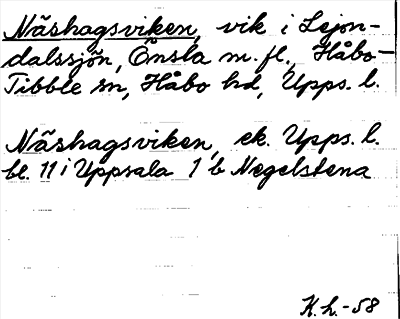 Näshagsviken, vik i Lejon-
dalssjön, Önsla m. fl., Håbo-
Tibble sn, Håbo hd, Upps. l.
Näshagsviken, ek. Upps. l.
bl. 11 i Uppsala 1 b Negelstena
K. h. -58